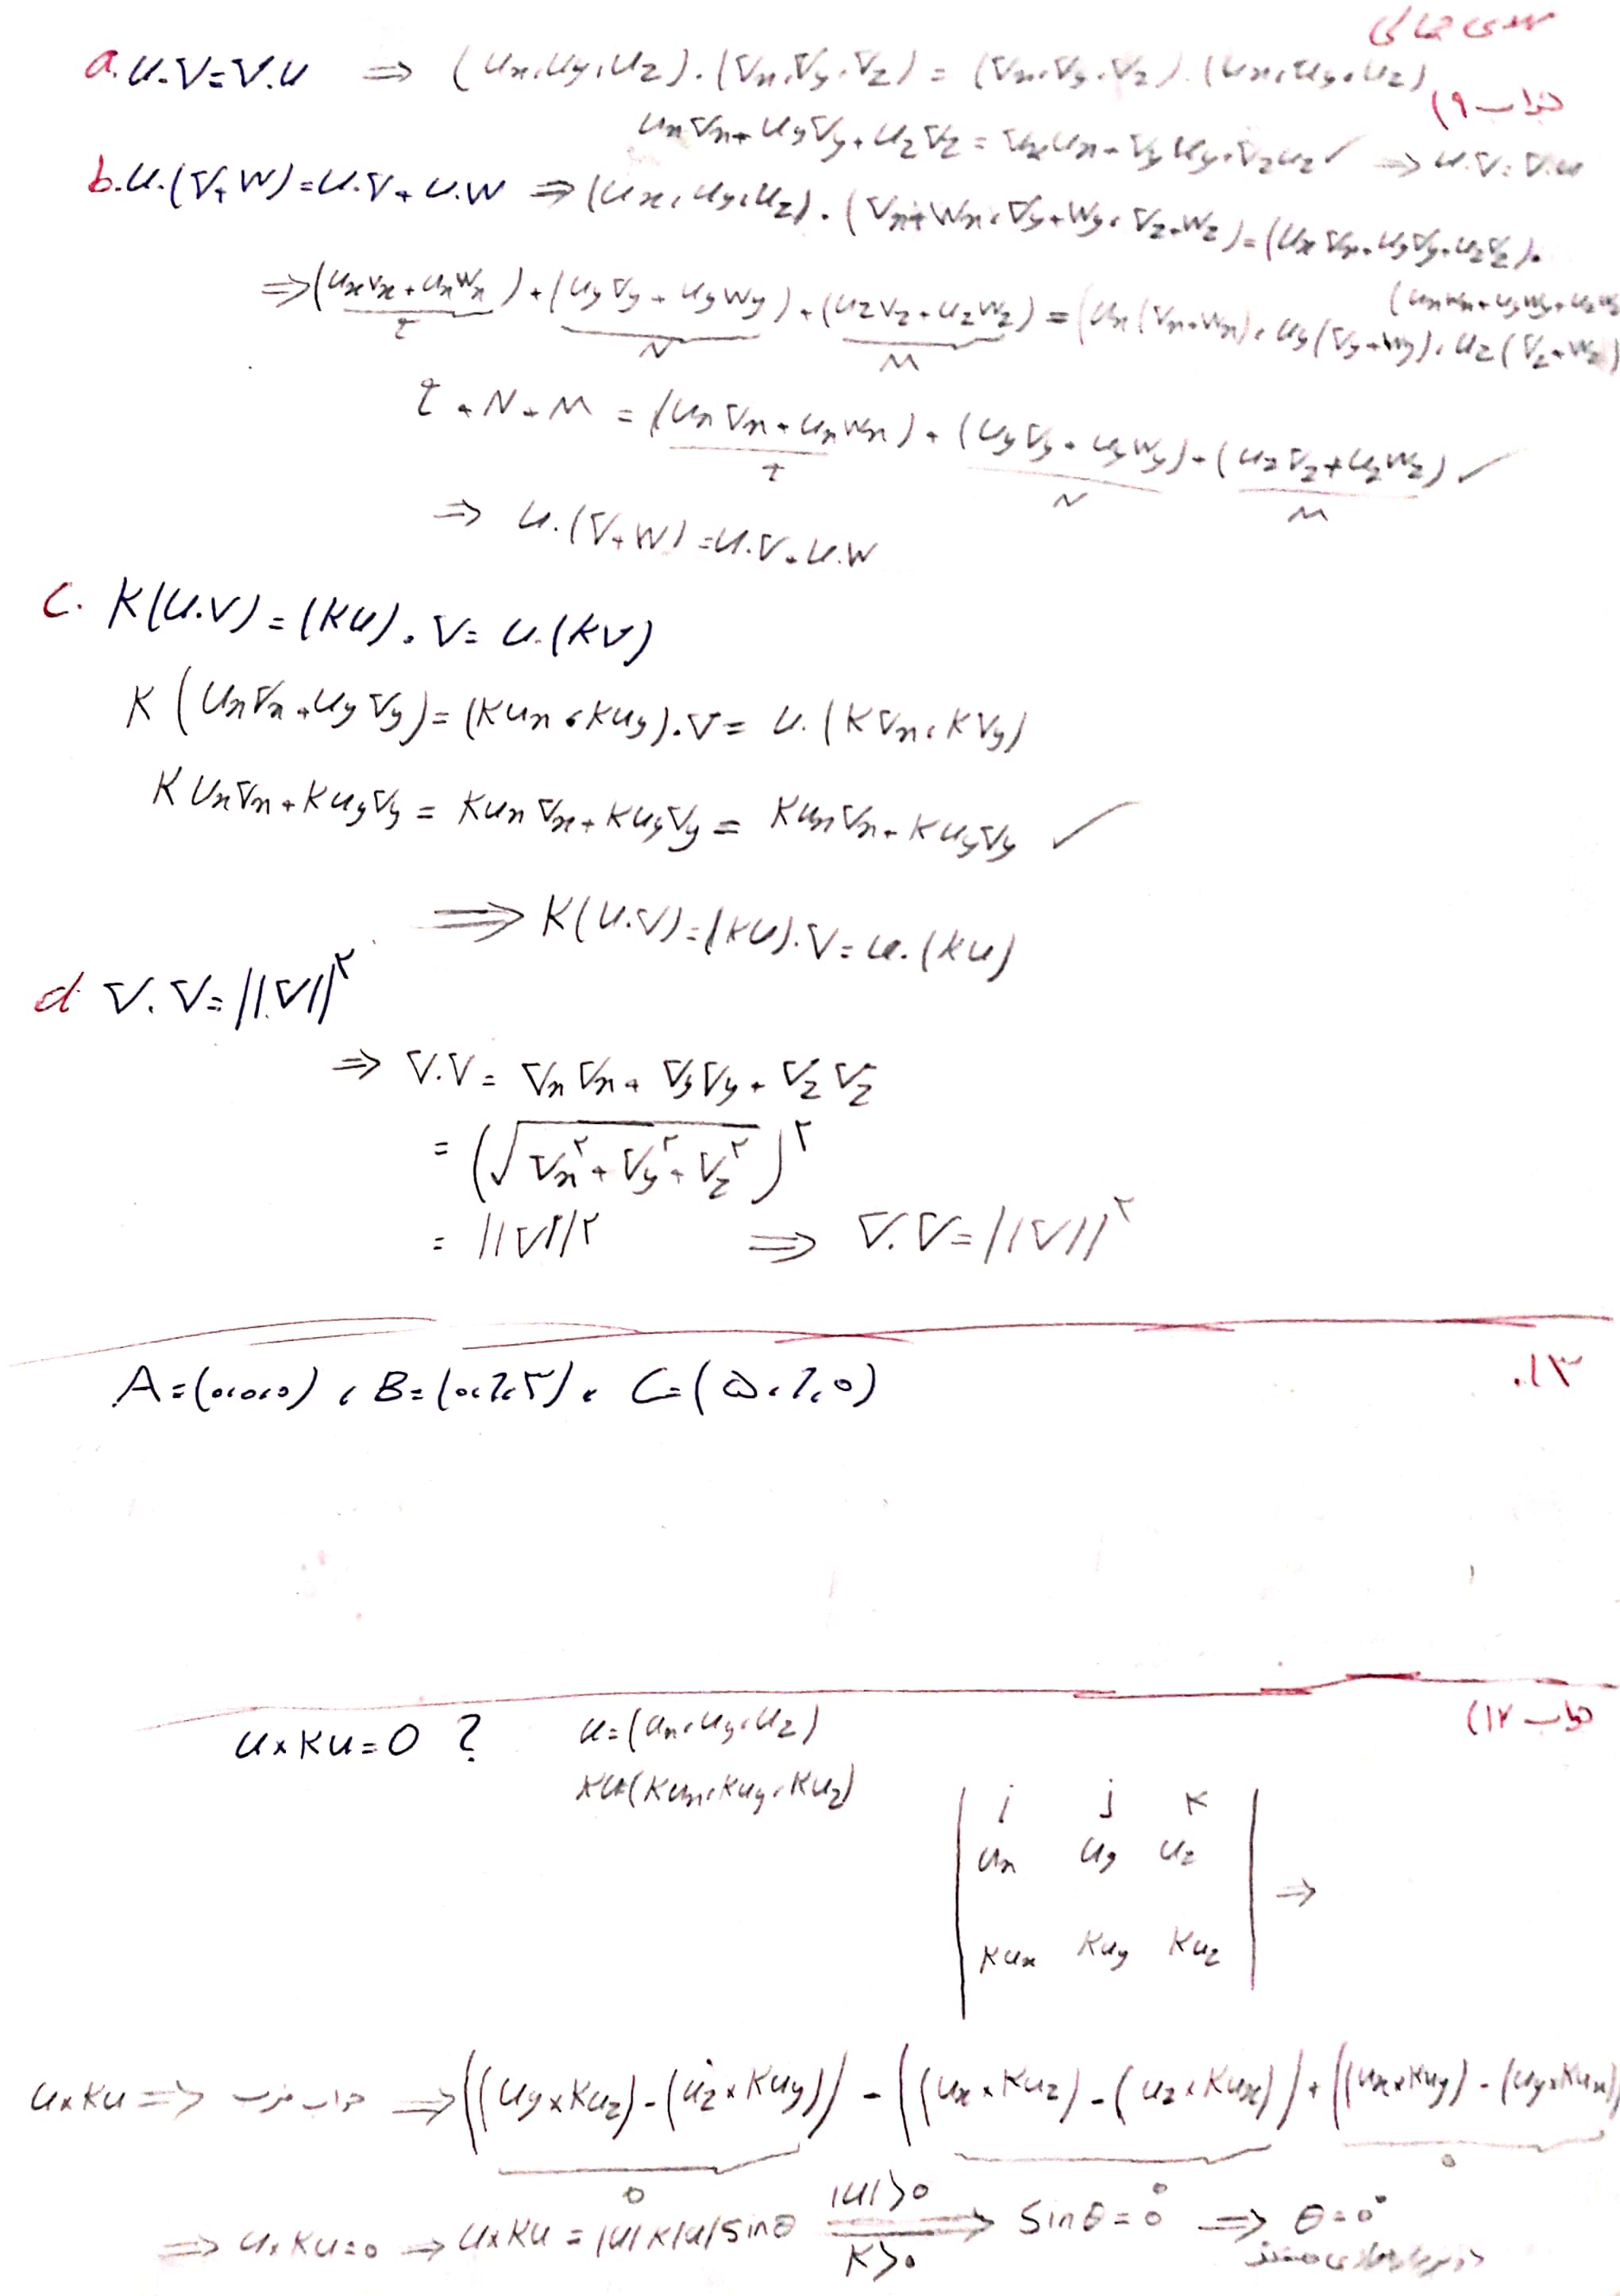 جواب ۹)
a. u.v=v.u ⇒ (ux,uy,uz).(vx,vy,vz) = (vx,vy,vz).(ux,uy,uz)
uxvx+uyvy+uzvz = vxux+vyuy+vzuz ✓ ⇒ u.v=v.u
b. u.(v+w)=u.v+u.w ⇒ (ux,uy,uz).(vx+wx,vy+wy,vz+wz)=(uxvx+uyvy+uzvz)+
(uxwx+uywy+uzwz)
⇒(uxvx+uxwx)+(uyvy+uywy)+(uzvz+uzwz) = (ux(vx+wx),uy(vy+wy),uz(vz+wz)
t N M
t+N+M = (uxvx+uxwx)+(uyvy+uywy)+(uzvz+uzwz) ✓
t N M
⇒ u.(v+w)=u.v+u.w
c. K(u.v)=(Ku).v=u.(Kv)
K(uxvx+uyvy)=(Kux,Kuy).v=u.(Kvx,Kvy)
Kuxvx+Kuyvy = Kuxvx+Kuyvy = Kuxvx+Kuyvy ✓
⇒ K(u.v)=(Ku).v=u.(Ku)
d v.v=||v||²
⇒ v.v= vxvx+vyvy+vzvz
= (√vx²+vy²+vz²)²
= ||v||² ⇒ v.v=||v||²
.۱۳
A=(0,0,0) , B=(0,2,3) , C=(۵,2,0)
جواب ۱۲)
u×Ku=0 ? u=(ux,uy,uz)
Ku=(Kux,Kuy,Kuz)
i j k
ux uy uz ⇒
Kux Kuy Kuz
u×Ku ⇒ جواب ضرب ⇒ ((uy×Kuz)-(uz×Kuy)) - ((ux×Kuz)-(uz×Kux)) + ((ux×Kuy)-(uy×Kux))
0 0 0
⇒ u×Ku=0 ⇒ u×Ku = |u|K|u|sinθ |u|>0 K>0 ⇒ sinθ=0 ⇒ θ=0°